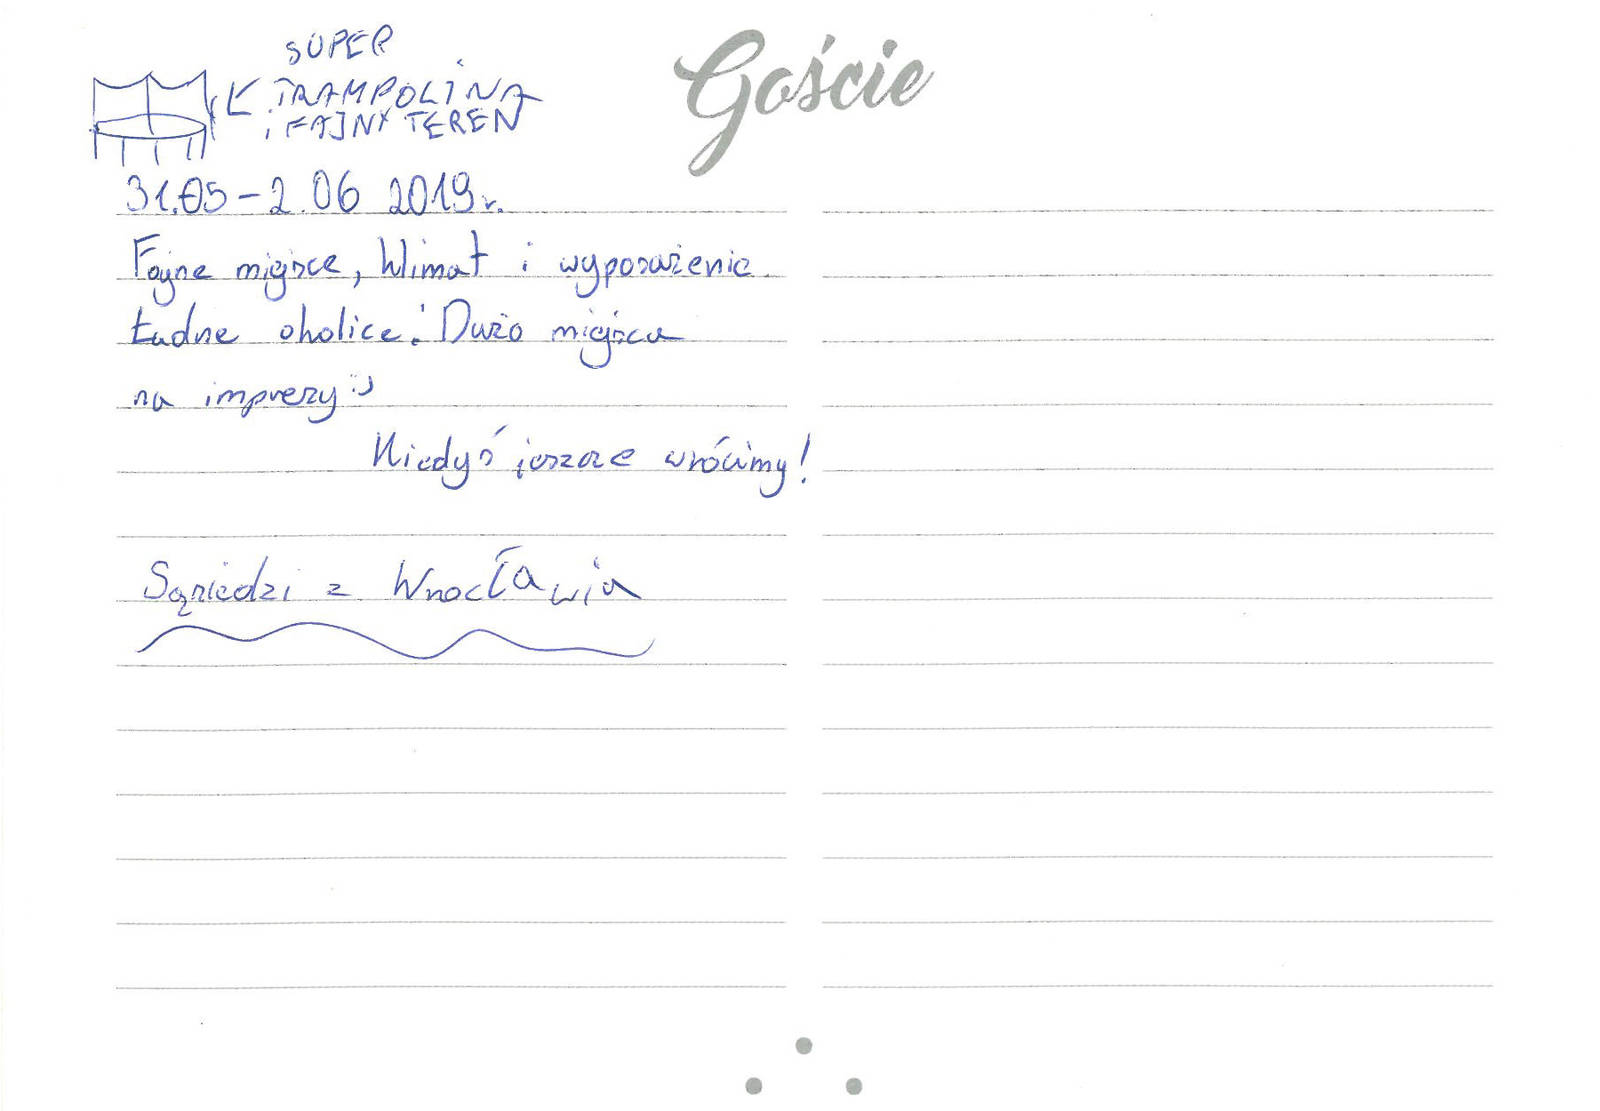 Goście
SUPER
TRAMPOLINA
i FAJNY TEREN
31.05-2.06 2019r.
Fajne miejsce, klimat i wyposażenie.
Ładne okolice! Dużo miejsca
na imprezy :)
Kiedyś jeszcze wrócimy!
Sąsiedzi z Wrocławia